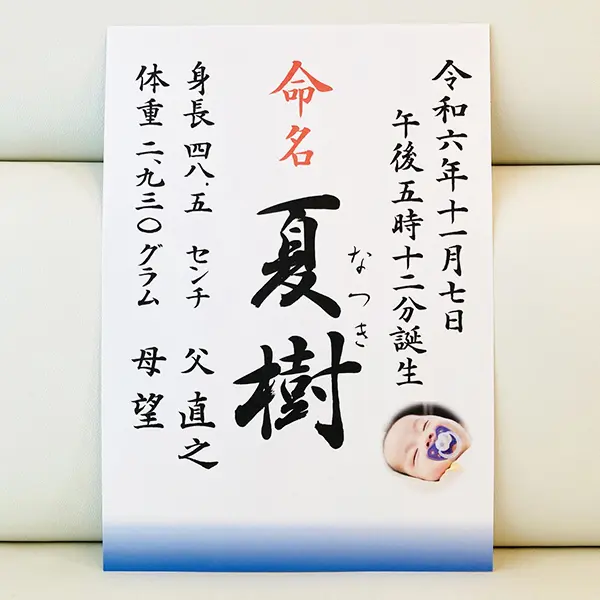 令和六年十一月七日
午後五時十二分誕生
なつき
命名
夏樹
身長 四八.五 センチ 父 直之
体重 二、九三〇グラム 母 望